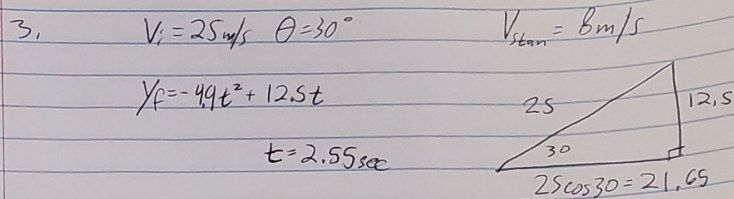 3. Vi = 25 m/s θ = 30° Vstan = 8 m/s
yf = -4.9t² + 12.5t
25
12.5
t = 2.55 sec
30
25cos30 = 21.65